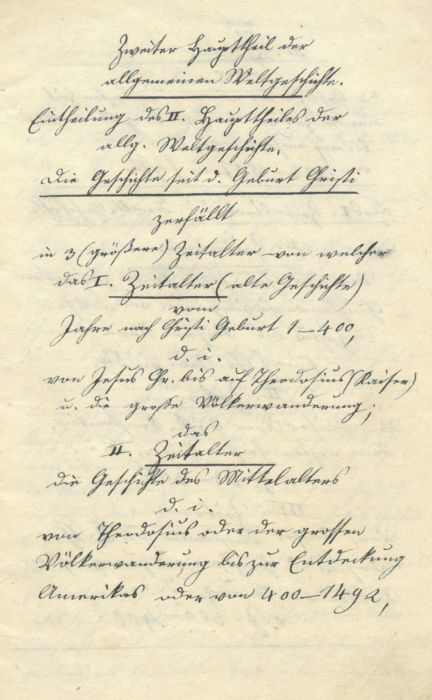 Zweiter Haupttheil der
allgemeinen Weltgeschichte.
Eintheilung des II. Haupttheiles der
allg. Weltgeschichte.
Die Geschichte seit d. Geburt Christi
zerfällt
in 3 (größere) Zeitalter von welcher
das I. Zeitalter (alte Geschichte)
vom
Jahre nach Christi Geburt 1–400,
d. i.
von Jesus Chr. bis auf Theodosius (Kaiser)
u. die große Völkerwanderung;
das
II. Zeitalter
die Geschichte des Mittelalters
d. i.
vom Theodosius oder der grossen
Völkerwanderung bis zur Entdeckung
Amerikas oder von 400–1492,